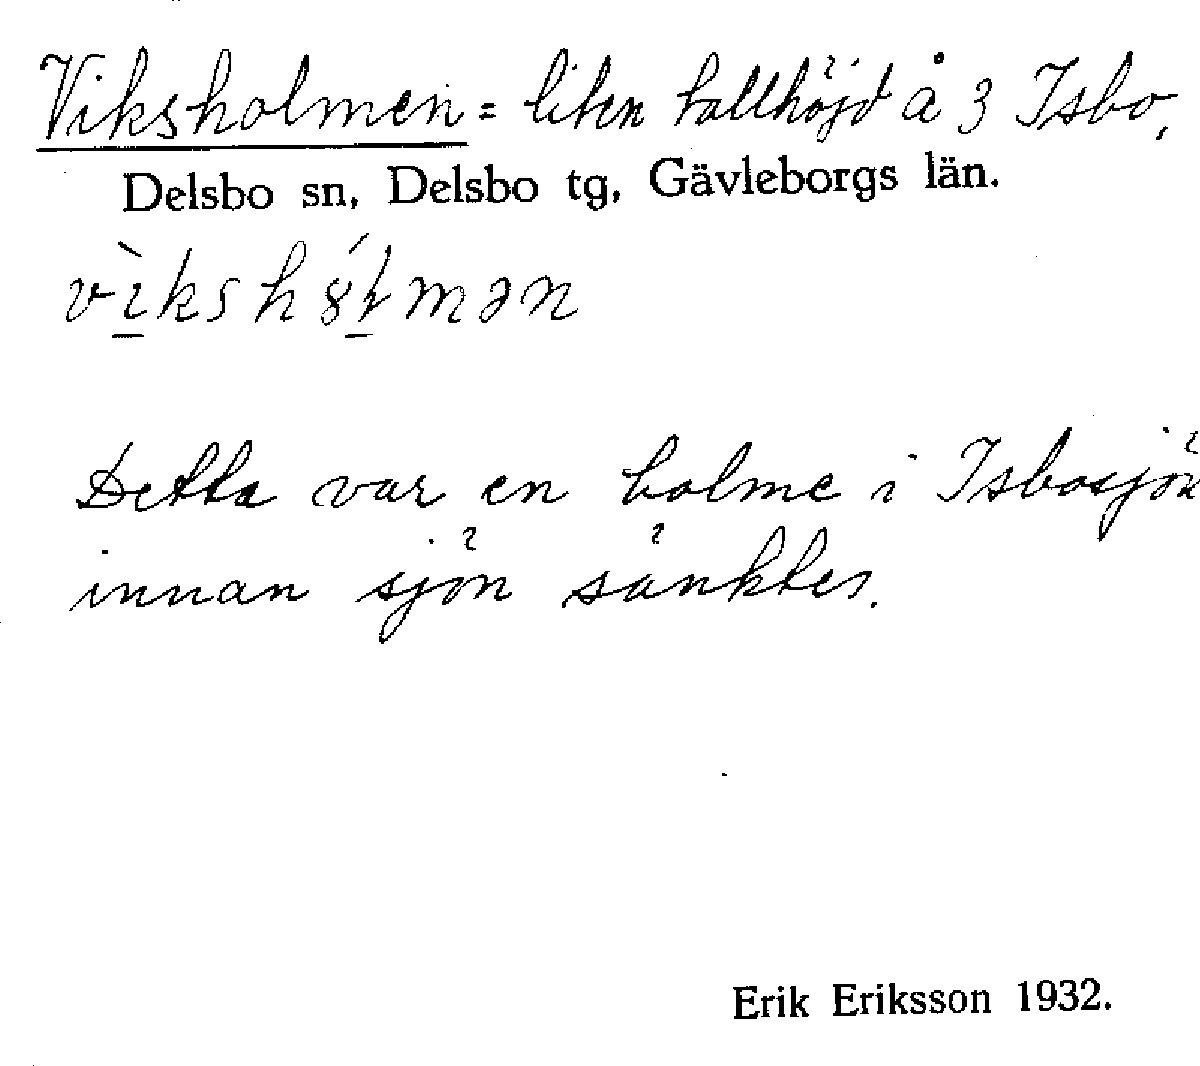 Viksholmen = liten tallhöjd å 3 Isbo,
Delsbo sn, Delsbo tg, Gävleborgs län.
Detta var en holme i Isbosjön
innan sjön sänktes.
Erik Eriksson 1932.